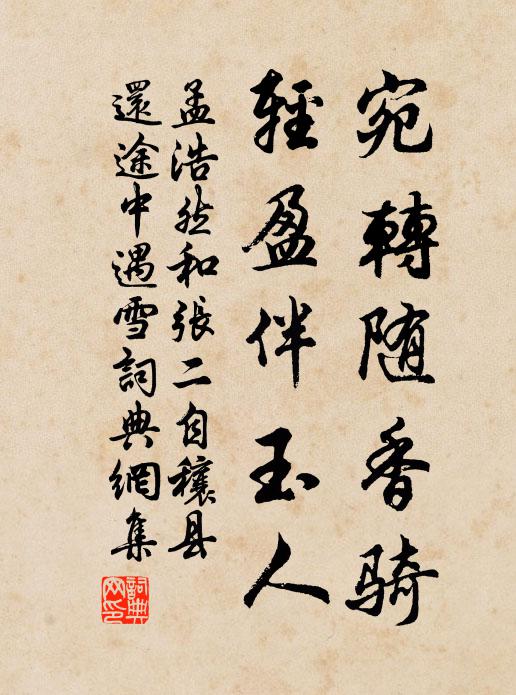 宛轉随香骑
輕盈伴玉人
孟浩然和張二自穰县
還途中遇雪詞典網集
詞典
网印